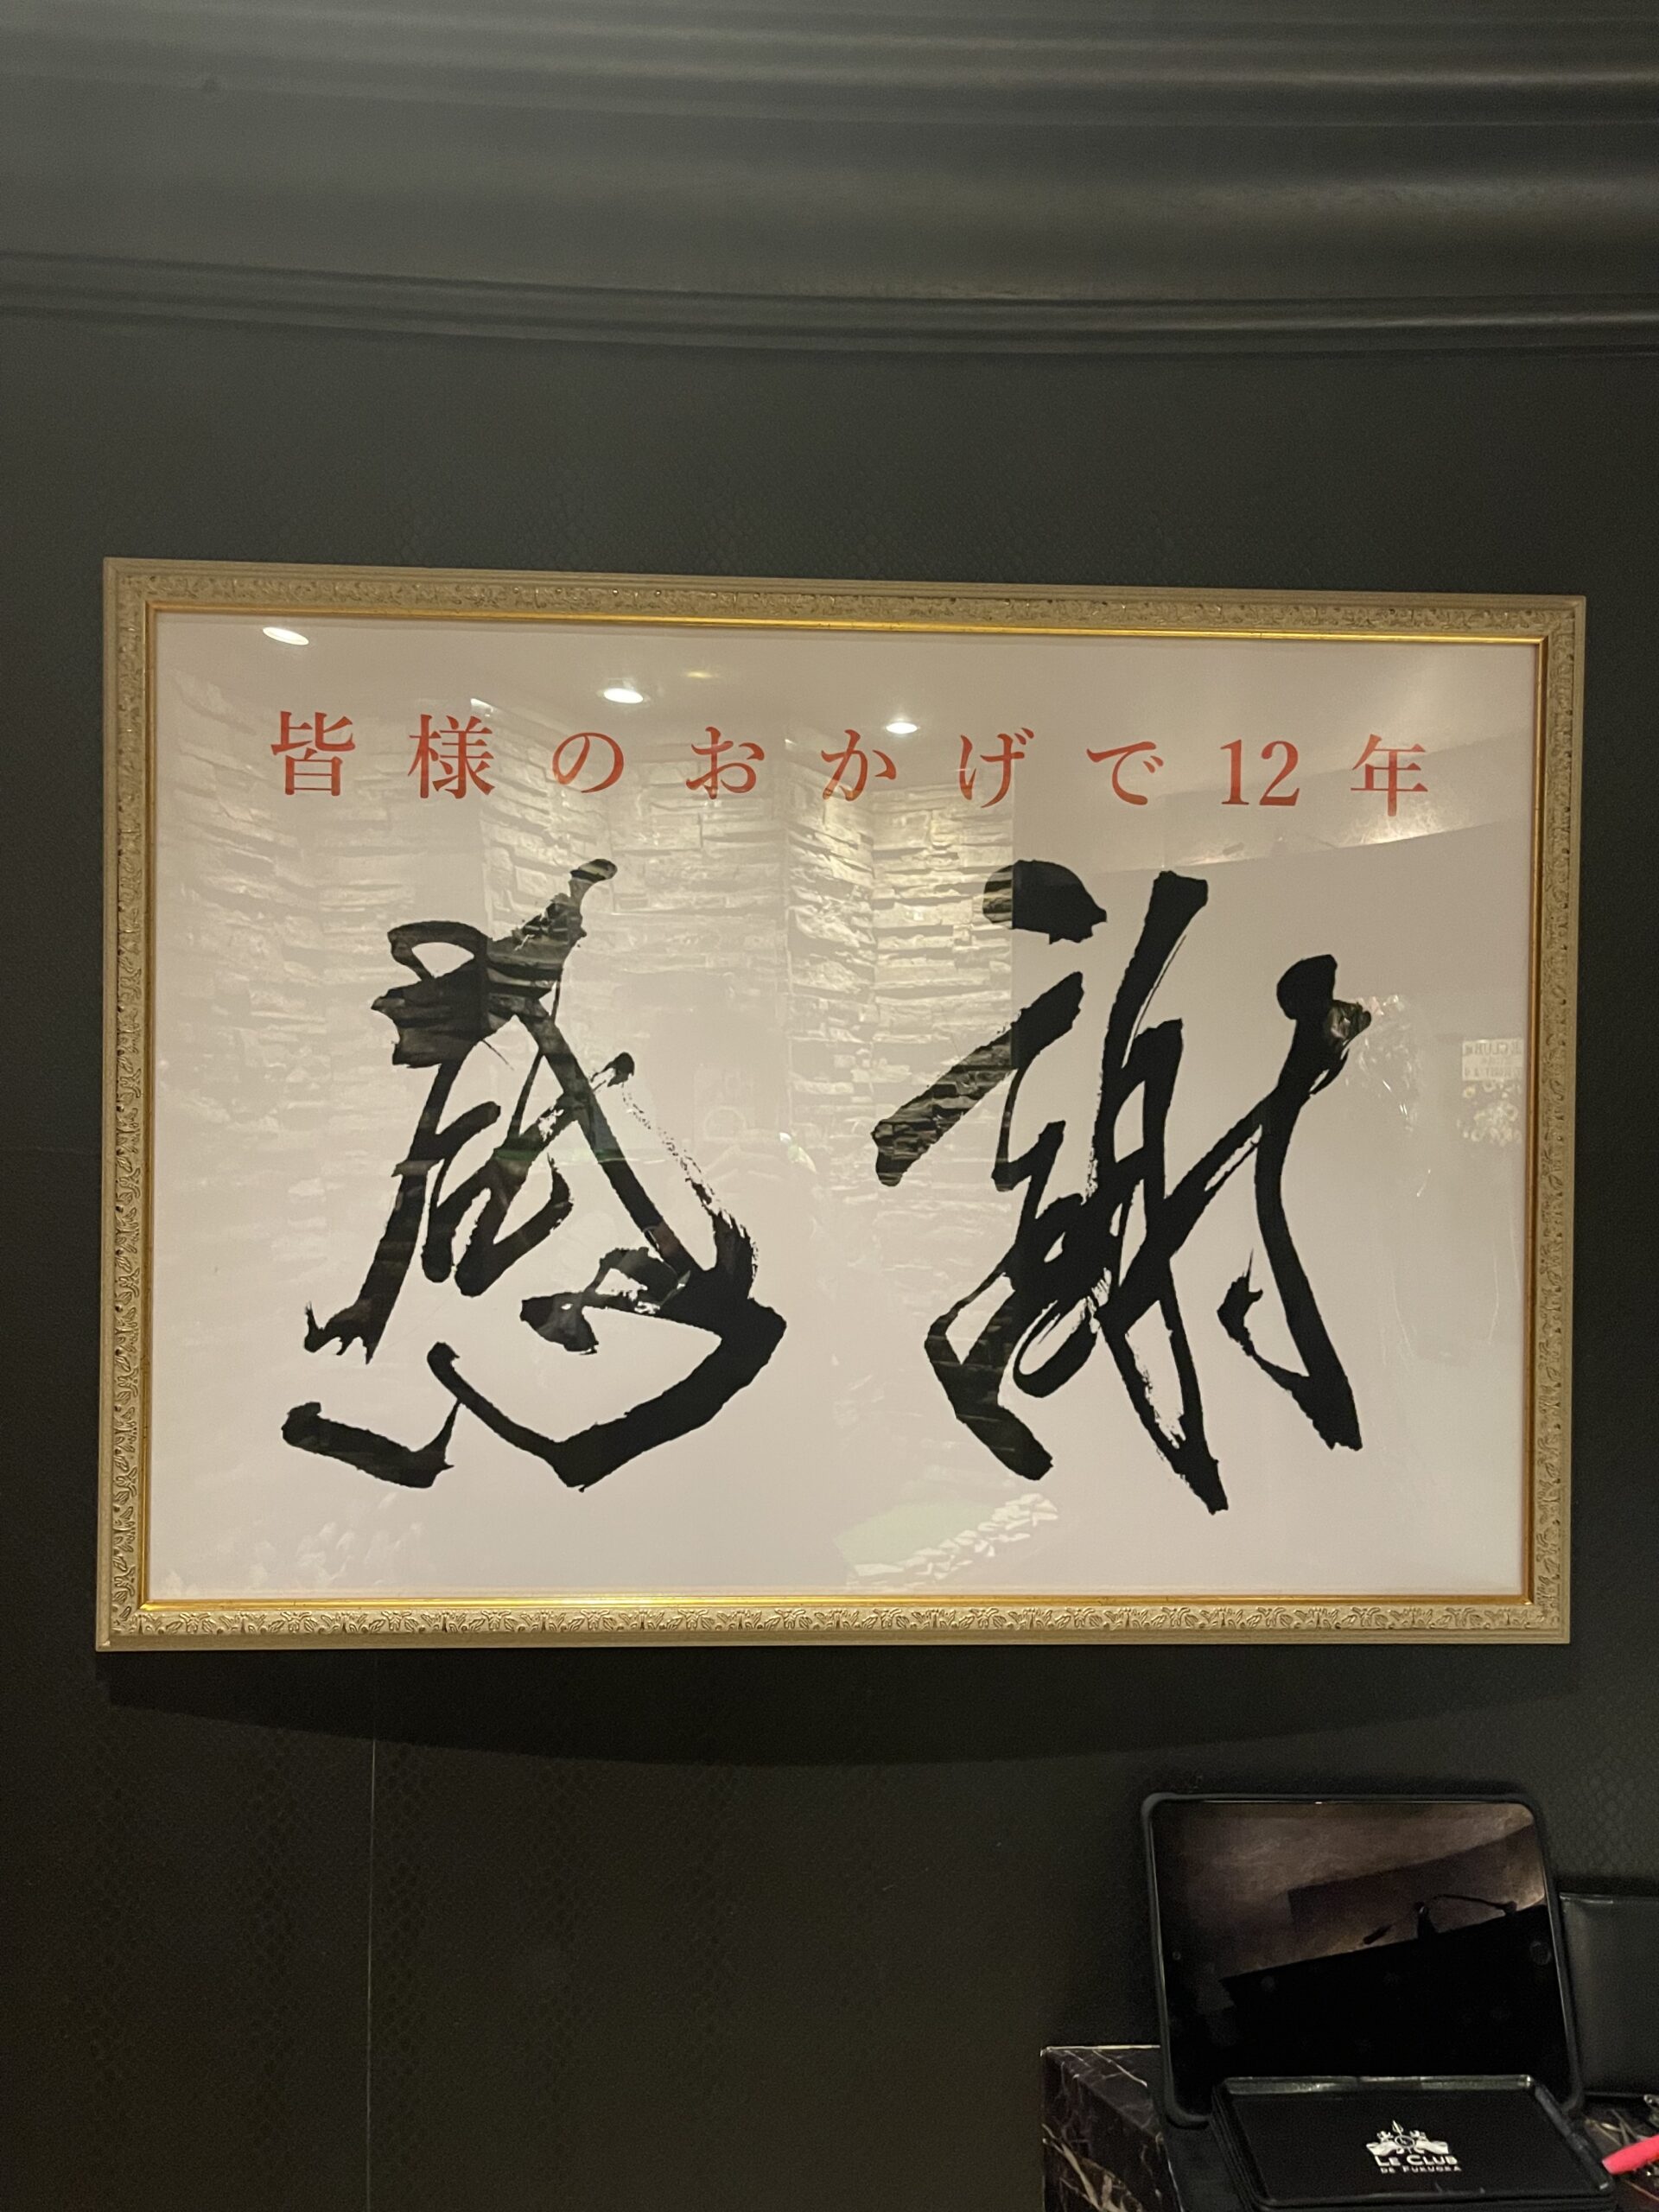 皆様のおかげで12年
感謝
LE CLUB
DE FUKUOKA